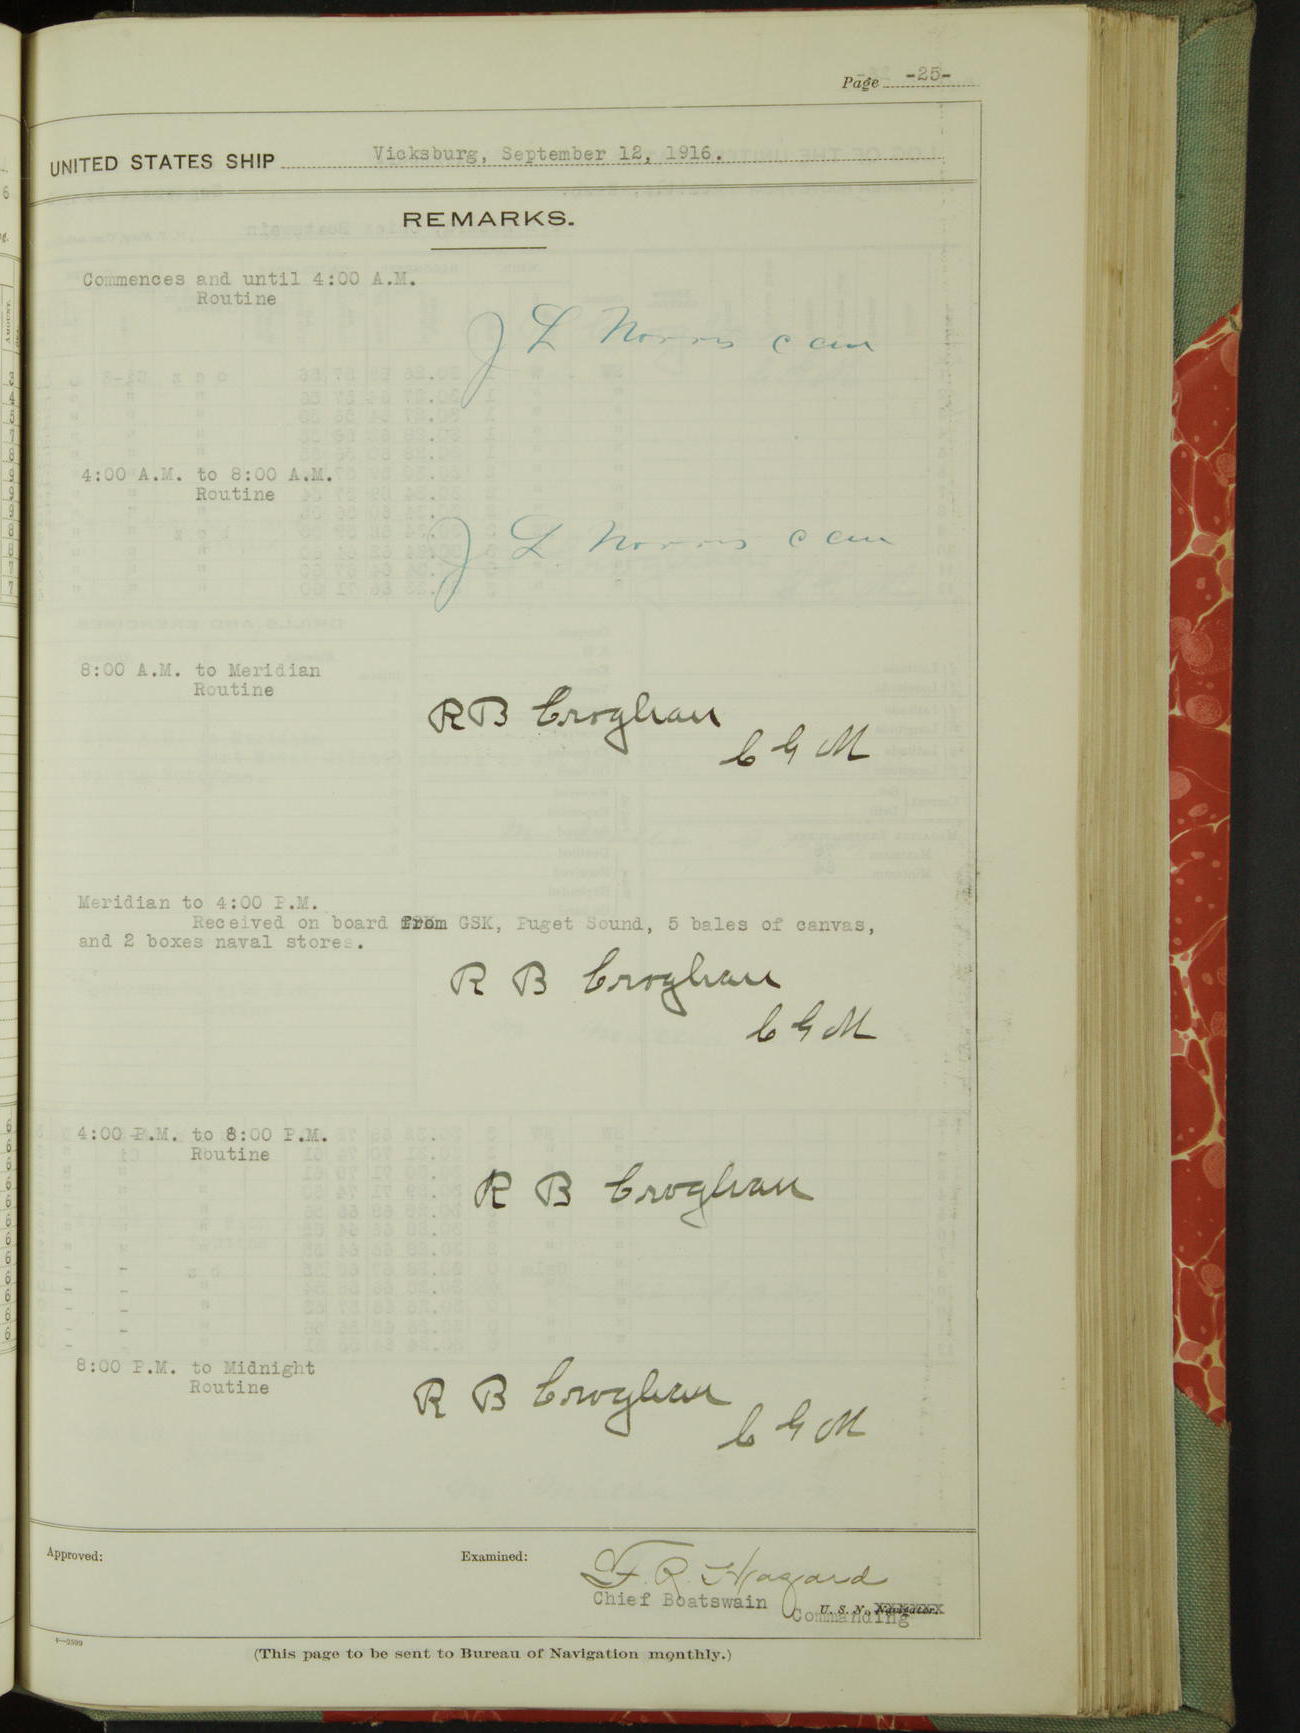 Page -25-
UNITED STATES SHIP Vicksburg, September 12, 1916.
REMARKS.
Commences and until 4:00 A.M.
Routine
J L Norris c cm
4:00 A.M. to 8:00 A.M.
Routine
J L Norris c cm
8:00 A.M. to Meridian
Routine
R B Croghan
C G M
Meridian to 4:00 P.M.
Received on board from GSK, Puget Sound, 5 bales of canvas,
and 2 boxes naval stores.
R B Croghan
C G M
4:00 P.M. to 8:00 P.M.
Routine
R B Croghan
8:00 P.M. to Midnight
Routine
R B Croghan
C G M
Approved:
Examined:
F. R. Hazard
Chief Boatswain U. S. N., Navigator.
Commanding
(This page to be sent to Bureau of Navigation monthly.)